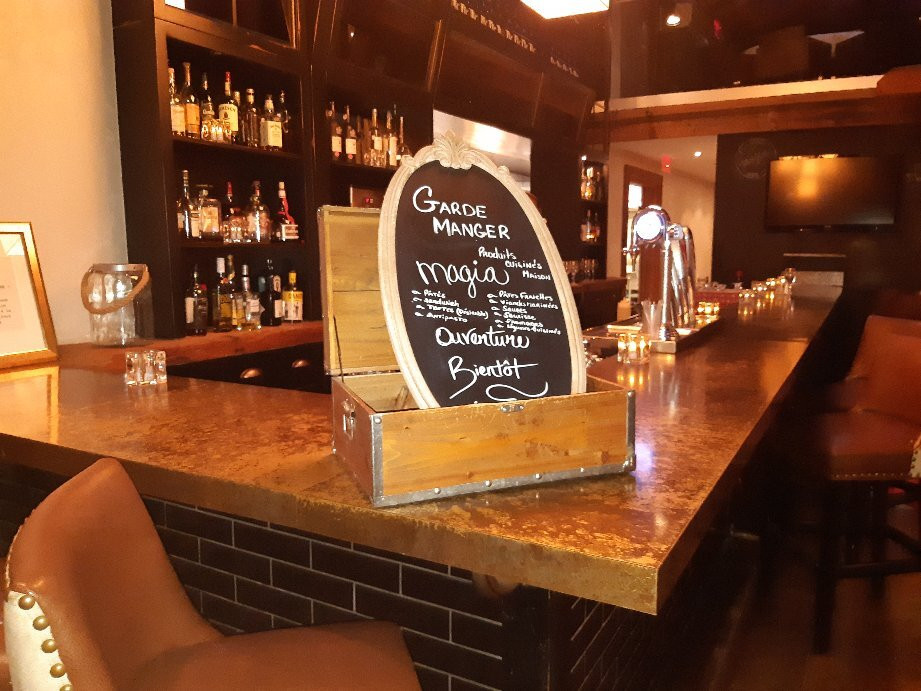 GARDE
MANGER
Produits
cuisinés
maison
magia
Pâtés
Sandwich
Antipasto
Pâtes Fraiches
Viandes marinées
Sauces
Saucisse
Fromages
Ouverture
Bientôt